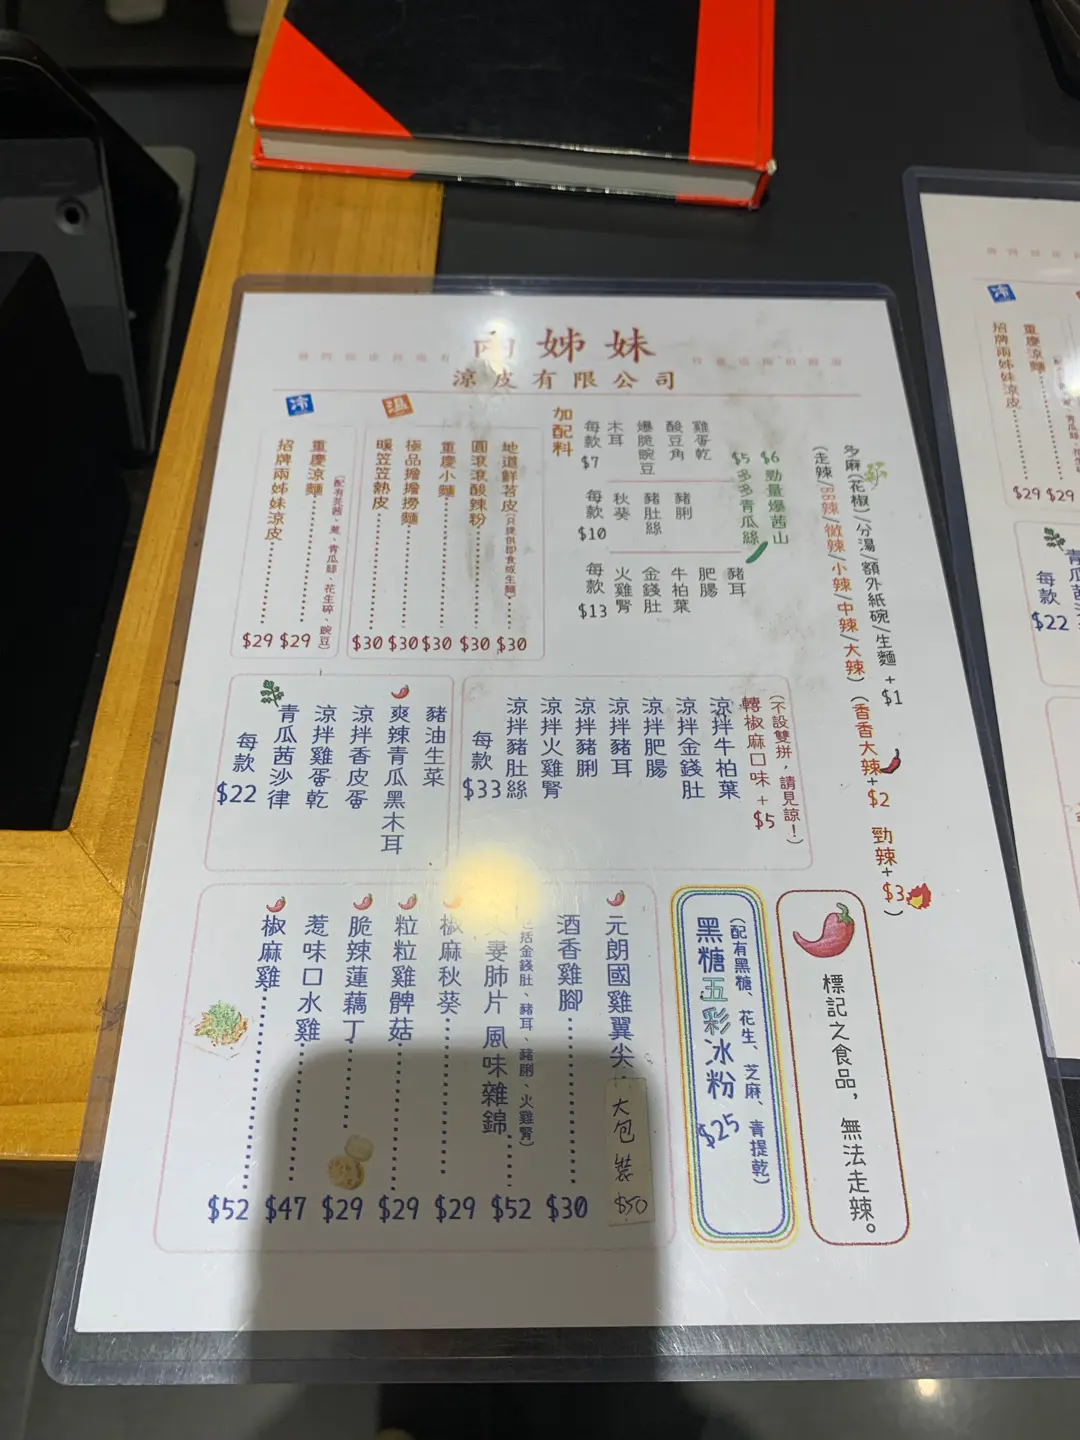 兩姊妹
涼皮有限公司
凍
招牌兩姊妹涼皮 $29
重慶涼麵 $29
(配有芫茜、蔥、青瓜絲、花生碎、豌豆)
溫
暖笠笠熱皮 $30
極品擔擔撈麵 $30
重慶小麵 $30
圓滾滾酸辣粉 $30
地道鮮苕皮(只提供即食或生麵) $30
加配料
每款 $7
木耳
爆脆豌豆
酸豆角
雞蛋乾
每款 $10
秋葵
豬肚絲
豬脷
每款 $13
火雞腎
金錢肚
牛柏葉
肥腸
豬耳
$5 多多青瓜絲
$6 勁量爆茜山
多麻(花椒)/分湯/額外紙碗/生麵 + $1
(走辣/BB辣/微辣/小辣/中辣/大辣)
(香香大辣 + $2 勁辣 + $3)
每款 $22
青瓜茜沙律
涼拌雞蛋乾
涼拌香皮蛋
爽辣青瓜黑木耳
豬油生菜
每款 $33
涼拌豬肚絲
涼拌火雞腎
涼拌豬脷
涼拌豬耳
涼拌肥腸
涼拌金錢肚
涼拌牛柏葉
轉椒麻口味 + $5
(不設雙拼，請見諒！)
椒麻雞 $52
惹味口水雞 $47
脆辣蓮藕丁 $29
粒粒雞髀菇 $29
椒麻秋葵 $29
妻肺片 風味雜錦 $52
括金錢肚、豬耳、豬脷、火雞腎)
酒香雞腳 $30
元朗國雞翼尖
大包裝 $50
黑糖五彩冰粉 $25
(配有黑糖、花生、芝麻、青提乾)
標記之食品，無法走辣。
凍
招牌兩姊妹涼皮 $29
重慶涼麵 $29
每款 $22